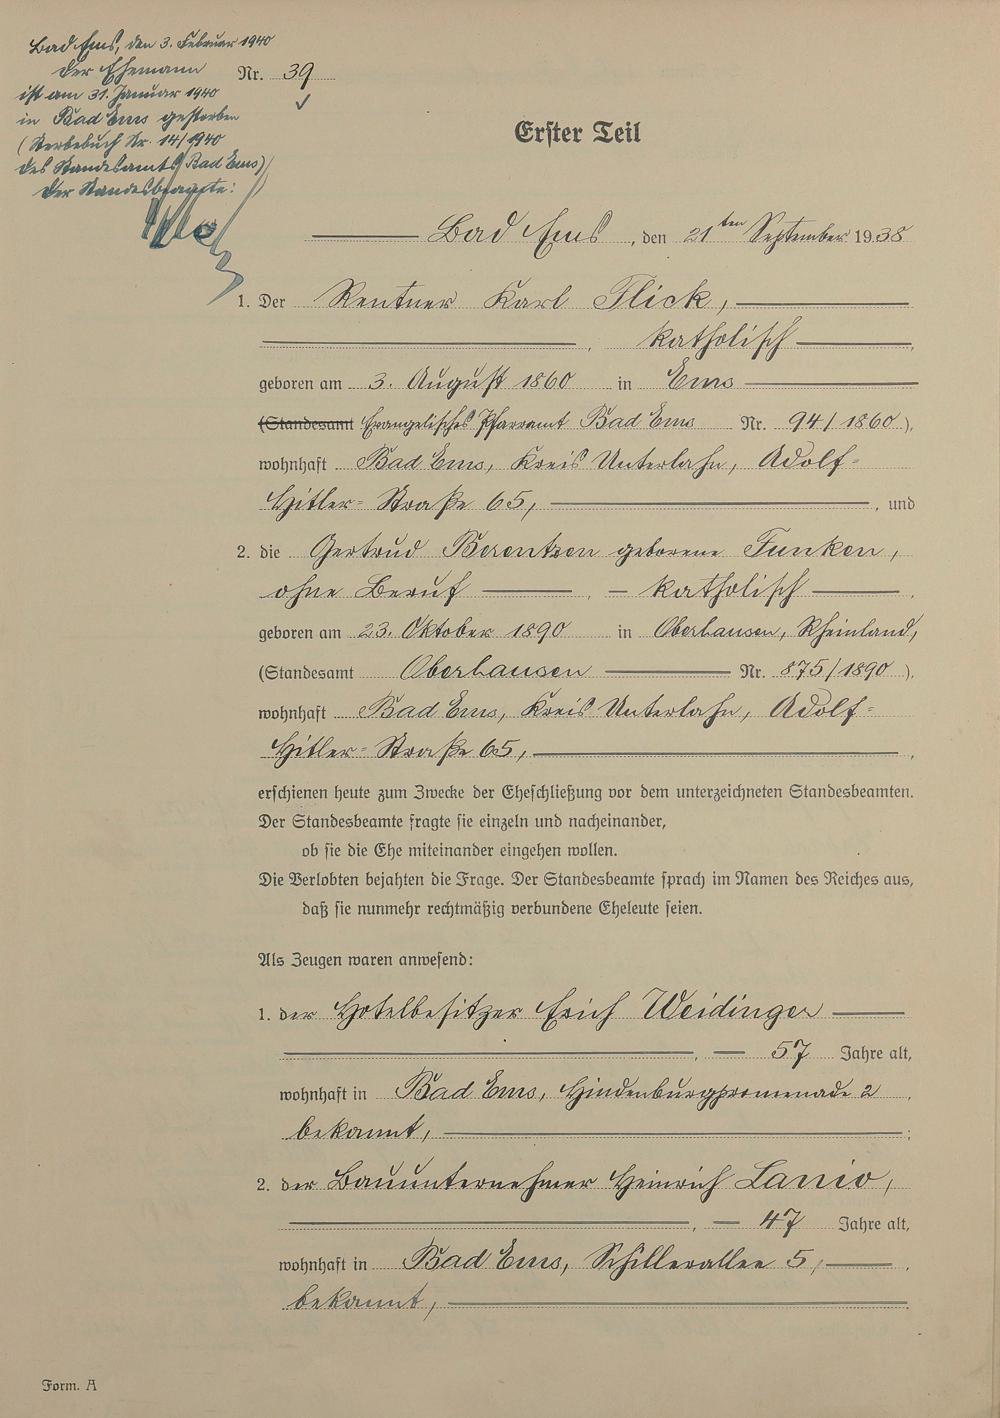 Bad Ems, den 3. Februar 1940
Der Ehemann
ist am 31. Januar 1940
in Bad Ems gestorben
(Sterbebuch Nr. 14/1940
des Standesamts Bad Ems)
Der Standesbeamte:
Nr. 39
Erster Teil
Bad Ems, den 21ten September 1938
1. Der Rentner Karl Flick,
, katholisch,
geboren am 3. August 1860 in Ems
(Standesamt Evangelisches Pfarramt Bad Ems Nr. 94/1860),
wohnhaft Bad Ems, Kreis Unterlahn, Adolf-
Hitler-Straße 65, , und
2. die Gertrud Berentzen geborene Funken,
ohne Beruf , katholisch ,
geboren am 23. Oktober 1890 in Oberhausen, Rheinland,
(Standesamt Oberhausen Nr. 875/1890),
wohnhaft Bad Ems, Kreis Unterlahn, Adolf-
Hitler-Straße 65, ,
erschienen heute zum Zwecke der Eheschließung vor dem unterzeichneten Standesbeamten.
Der Standesbeamte fragte sie einzeln und nacheinander,
ob sie die Ehe miteinander eingehen wollen.
Die Verlobten bejahten die Frage. Der Standesbeamte sprach im Namen des Reiches aus,
daß sie nunmehr rechtmäßig verbundene Eheleute seien.
Als Zeugen waren anwesend:
1. der Hotelbesitzer Erich Weidinger
, 57 Jahre alt,
wohnhaft in Bad Ems, Hindenburgpromenade 2 ,
bekannt, ;
2. der Bauunternehmer Heinrich Lanio,
, 47 Jahre alt,
wohnhaft in Bad Ems, Schillerallee 5, ,
bekannt, .
Form. A